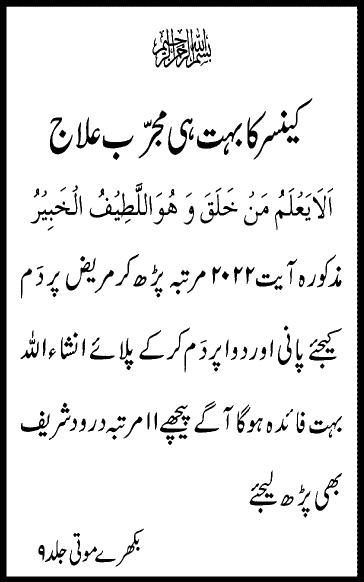 بسم اللہ الرحمن الرحیم
کینسر کا بہت ہی مجرّب علاج
اَلَا يَعْلَمُ مَنْ خَلَقَ وَ هُوَ اللَّطِيْفُ الْخَبِيْرُ
مذکورہ آیت ۲۰۲۲ مرتبہ پڑھ کر مریض پر دَم
کیجئے پانی اور دوا پر دَم کرکے پلائے انشاء اللہ
بہت فائدہ ہوگا آگے پیچھے ۱۱ مرتبہ درود شریف
بھی پڑھ لیجئے
بکھرے موتی جلد ۹